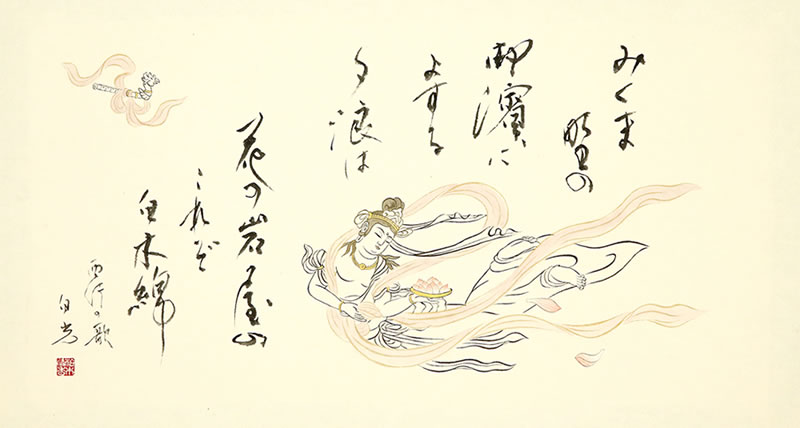 みくま
野の
御濱に
よする
夕浪は
花の岩屋の
これぞ
白木綿
西行の歌
白光